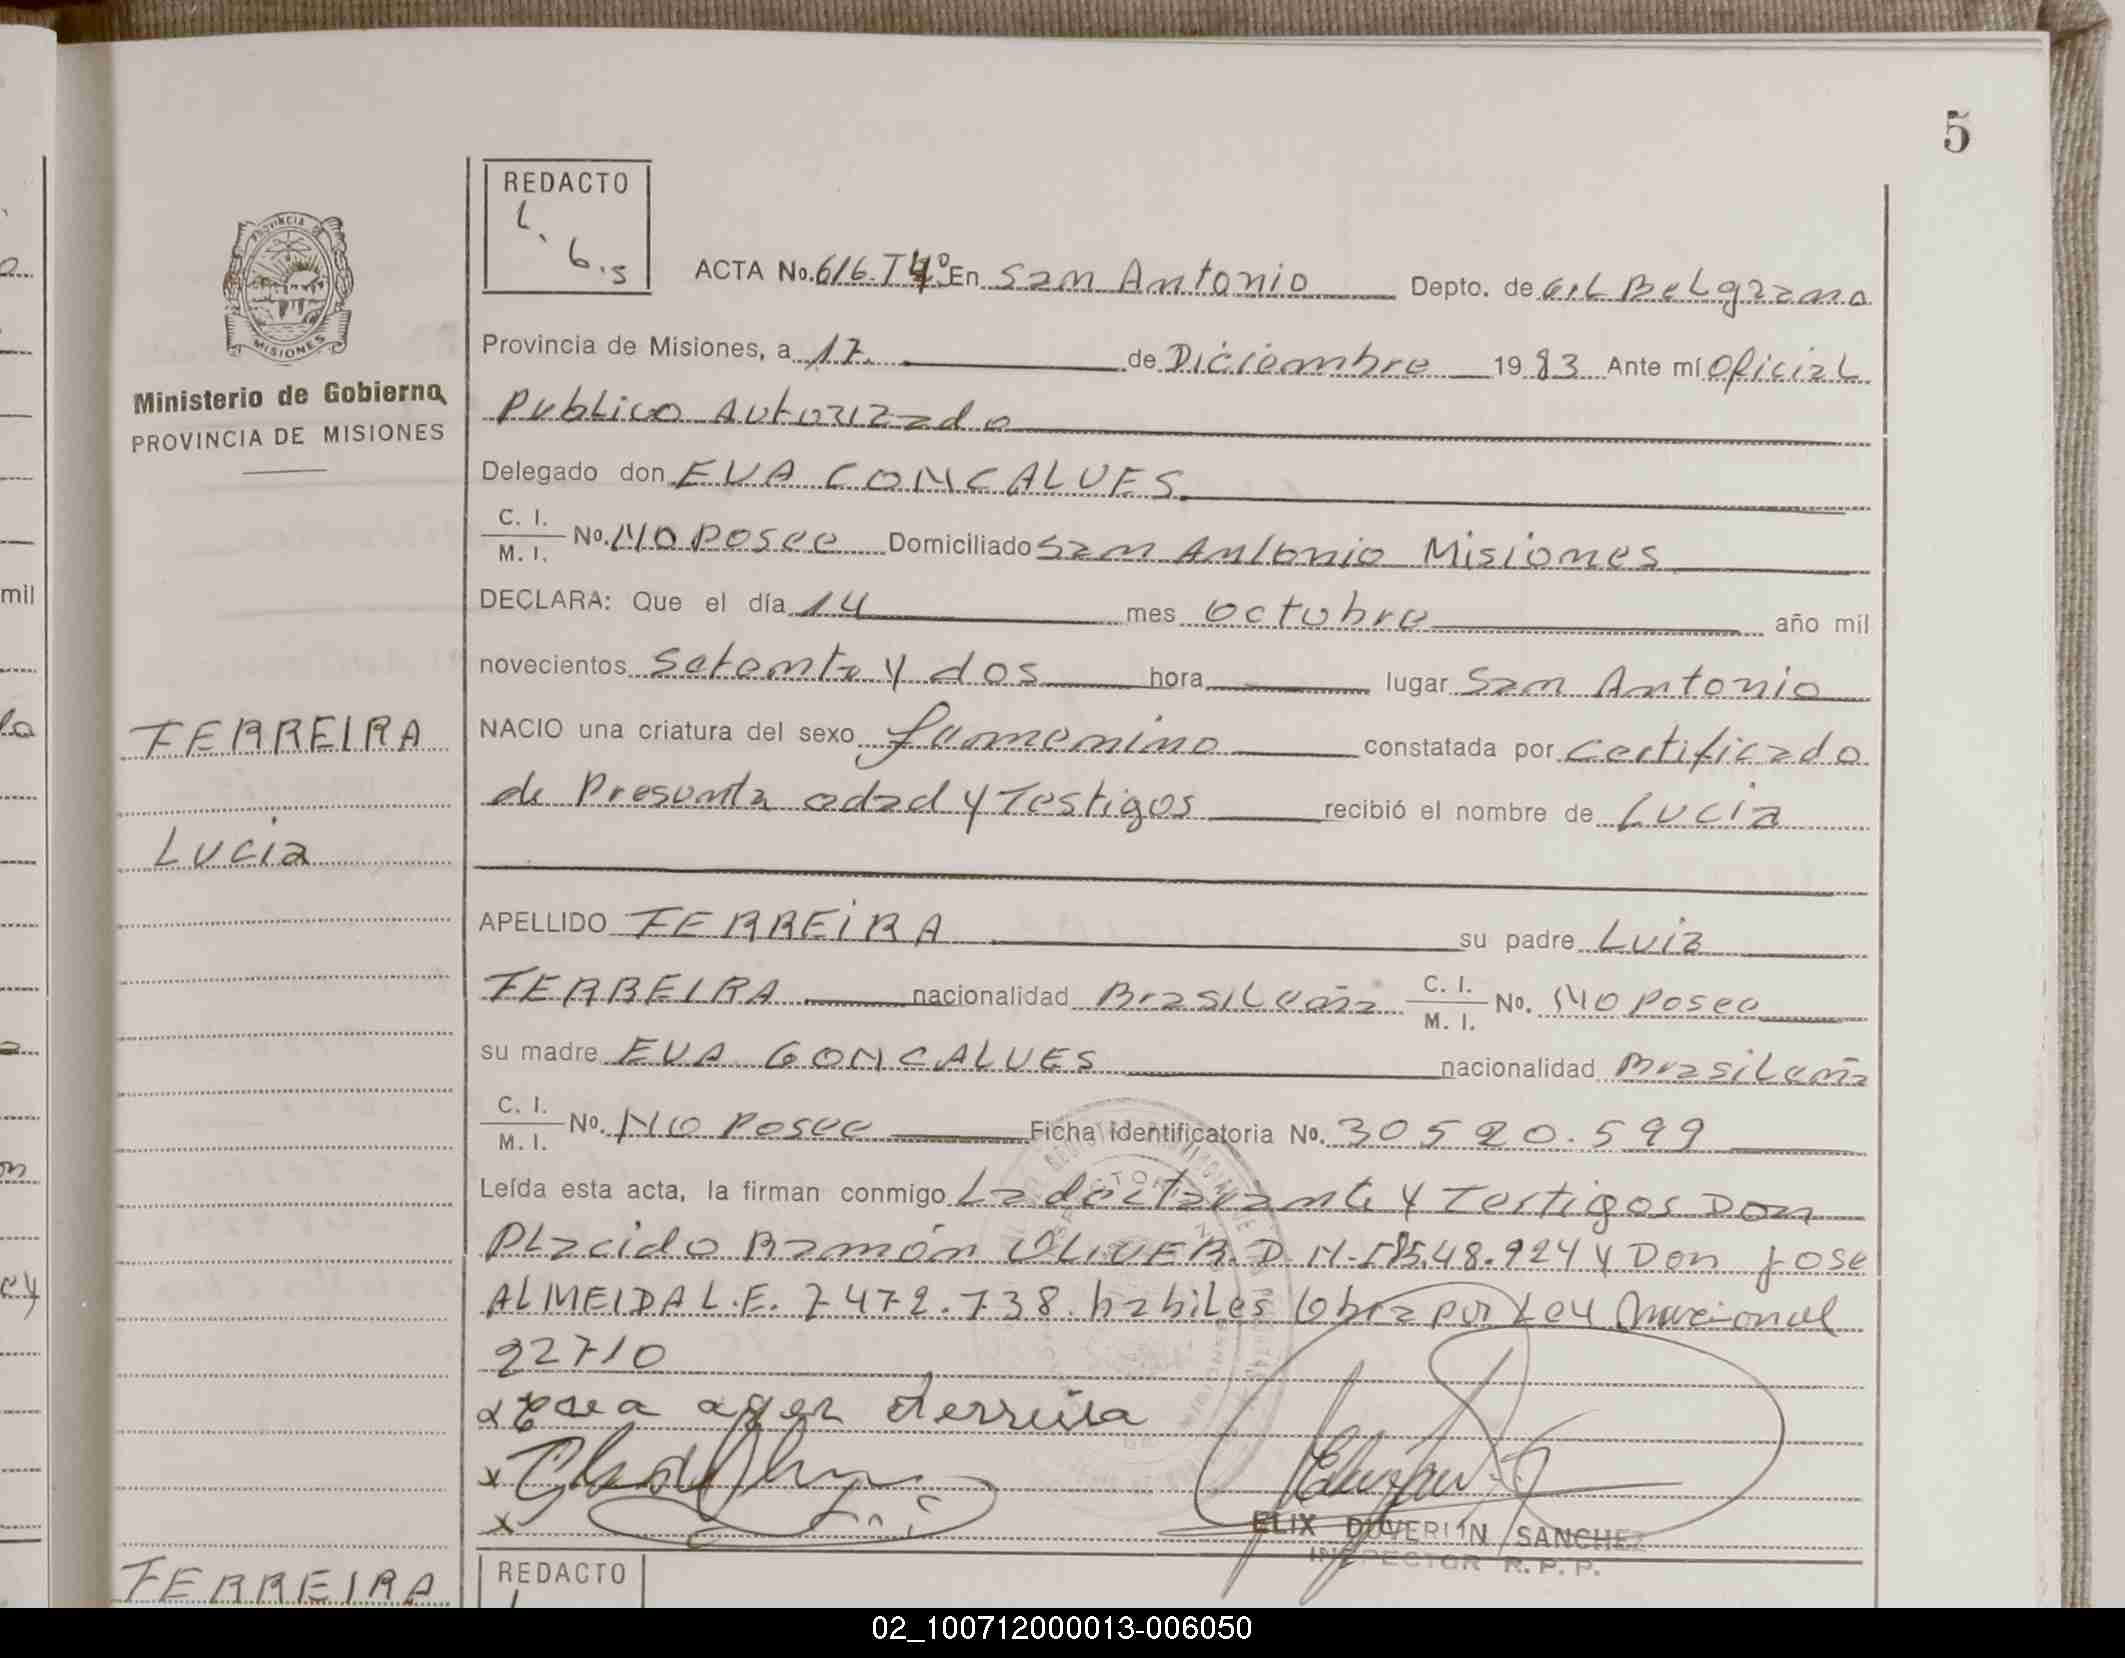 5
REDACTO
L. G.S
PROVINCIA
MISIONES
ACTA No. 616. T4º En San Antonio Depto. de GrL BeLgrano
Ministerio de Gobierno
PROVINCIA DE MISIONES
Provincia de Misiones, a 17 de Diciembre 1983 Ante mí OficiaL
PubLico Autorizado
Delegado don EVA GONCALVES
C. I.
M. I. No. No posee Domiciliado San Antonio Misiones
DECLARA: Que el día 14 mes octubre año mil
novecientos setenta y dos hora lugar San Antonio
FERREIRA
NACIO una criatura del sexo femenino constatada por certificado
de Presunta edad y Testigos recibió el nombre de Lucia
Lucia
APELLIDO FERREIRA su padre Luiz
FERREIRA nacionalidad BrasiLeña C. I.
M. I. No. No posee
su madre EVA GONCALVES nacionalidad BrasiLeña
C. I.
M. I. No. No Posee Ficha identificatoria No. 30520.599
Leída esta acta, la firman conmigo La decLarante y Testigos Don
PLacido Ramón OLIVER. D.N.I 8548.924 y Don Jose
ALMEIDA L.E. 7472.738. habiLes Obra por Ley Nacional
22710
ELIX DUVERLIN SANCHEZ
INSPECTOR R. P. P.
FERREIRA
REDACTO
mil
02_100712000013-006050